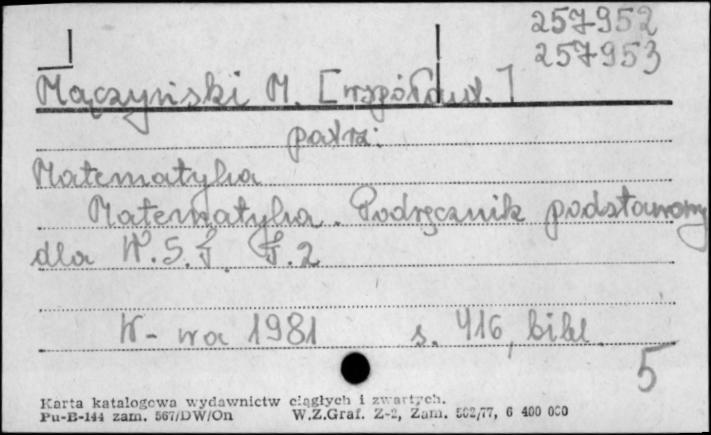 257952
257953
Mączyński M. [współaut.]
patrz:
Matematyka
Matematyka. Podręcznik podstawowy
dla W.S.T. T.2
W-wa 1981 s. 416, bibl.
5
Karta katalogowa wydawnictw ciągłych i zwartych.
Pu-B-144 zam. 567/DW/On W.Z.Graf. Z-2, Zam. 502/77, 6 400 000